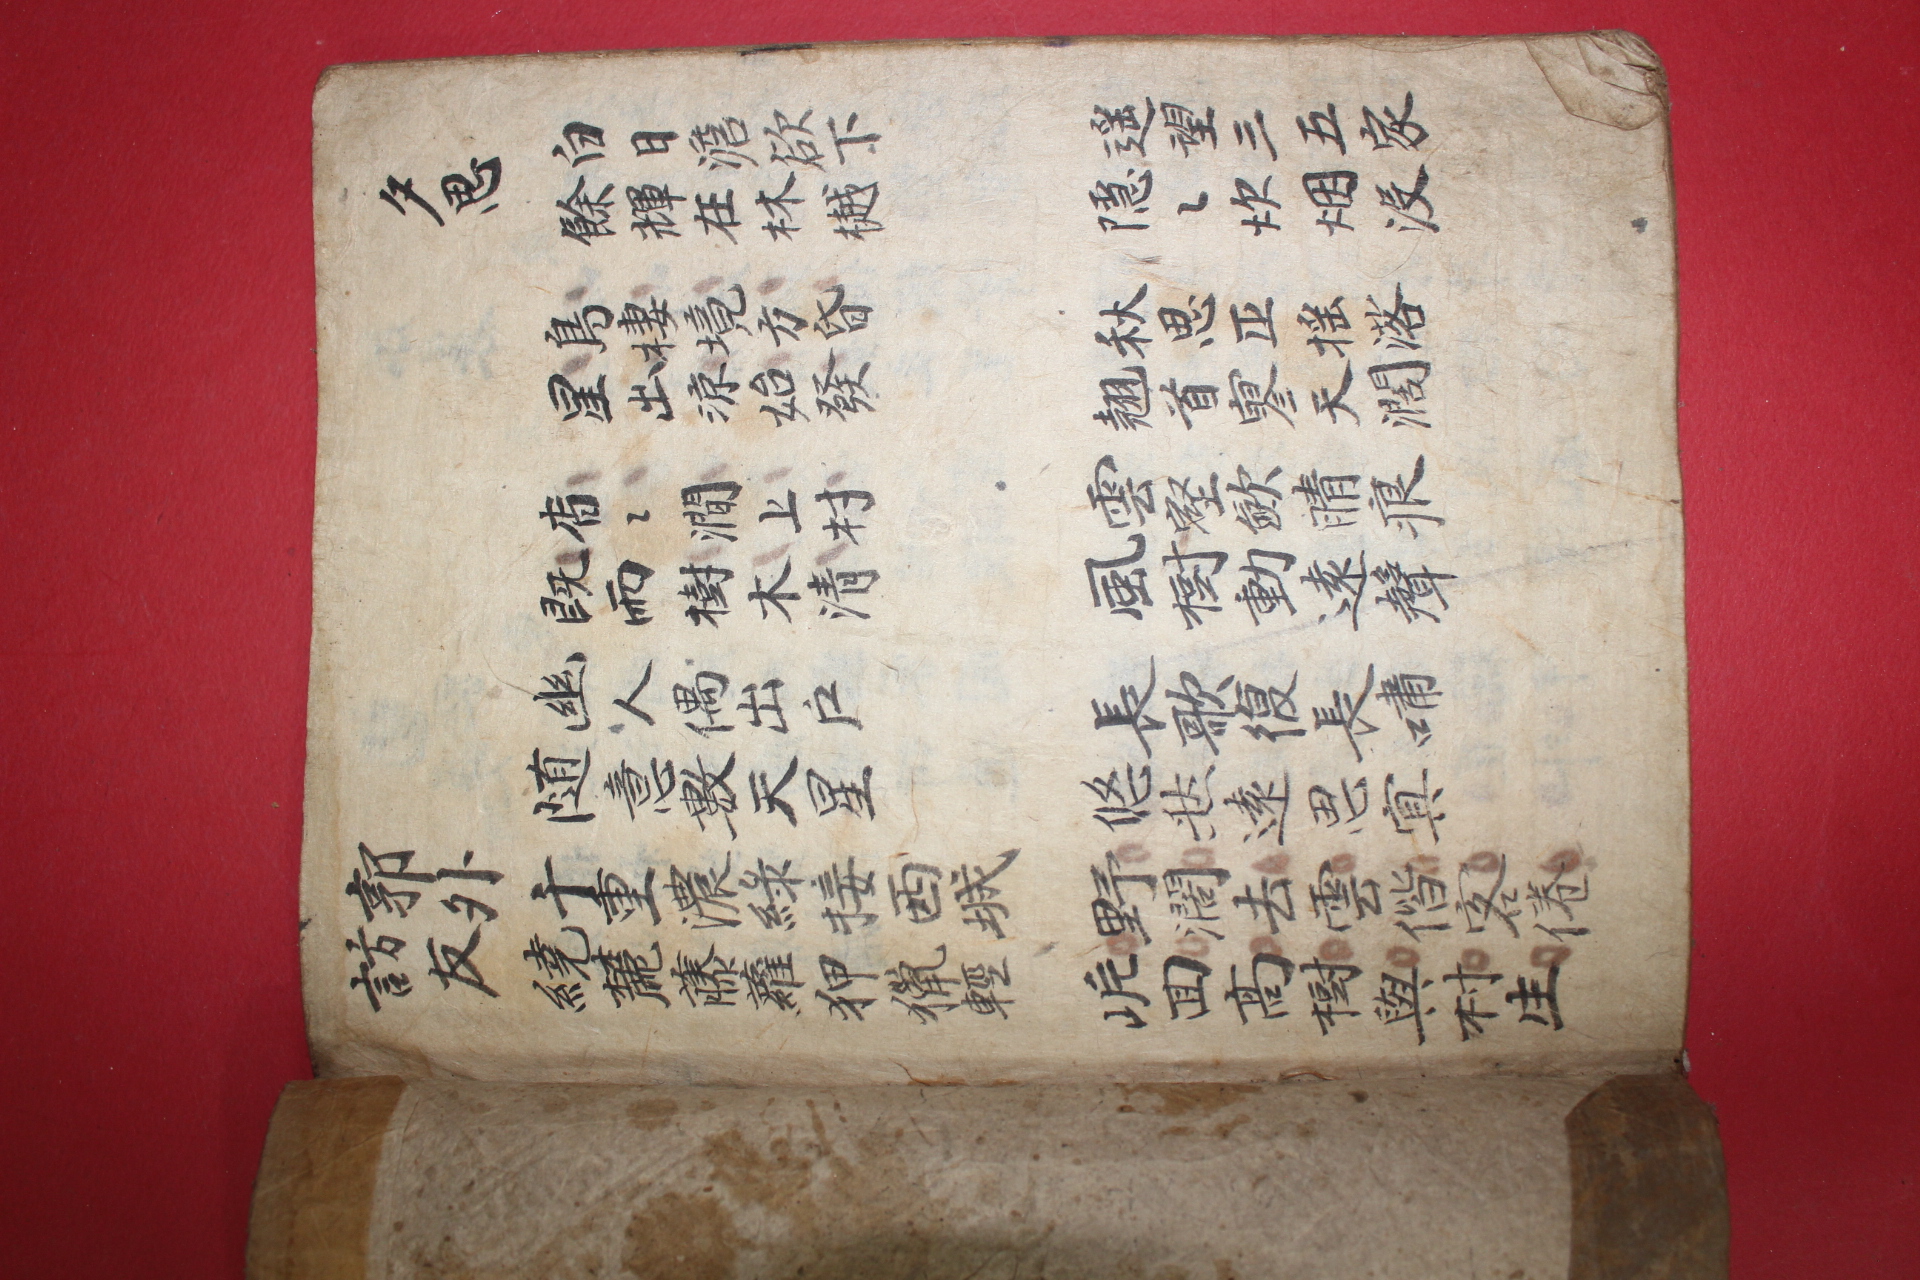 夕思
白日澹欲下
餘輝在林樾
遥望三五家
隱〻炊烟没
鳥棲境方昏
星出涼始發
秋思正摇落
翹首寥天濶
杳〻澗上村
既雨樹木清
雲壑歛晴痕
風樹動遠聲
幽人偶出户
随意數天星
長歌復長嘯
悠然遠思冥
郭外
訪友
千重濃綠接西城
繞麓藤蘿狎獵輕
野濶去雲偕客倦
岏回高樹與村生